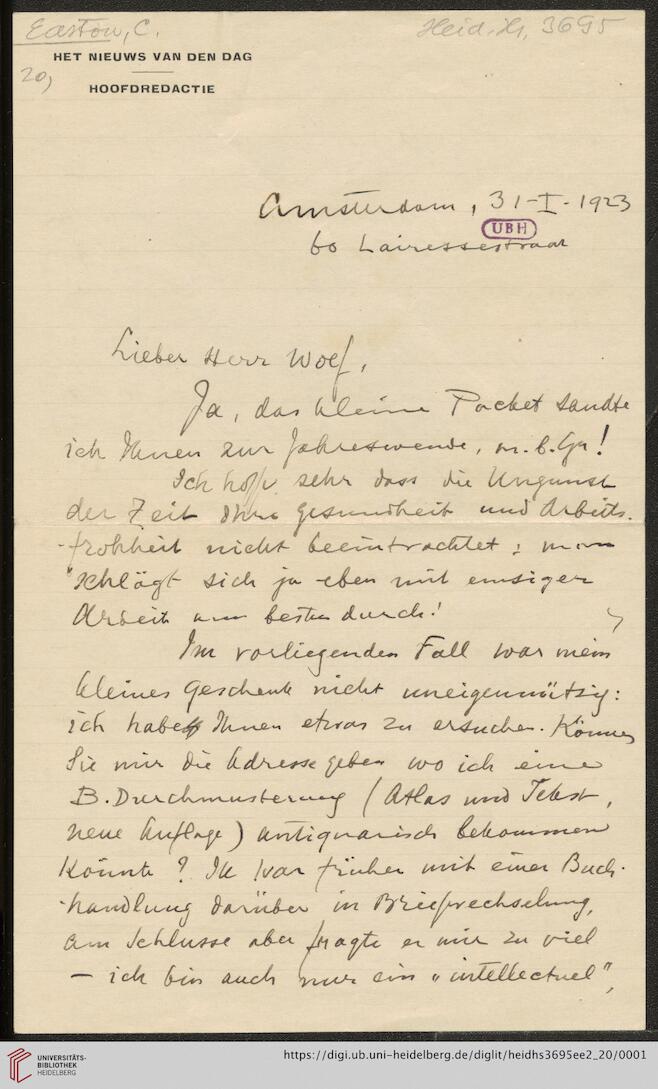 Easton, C.
Heid. Hs. 3695
HET NIEUWS VAN DEN DAG
20,
HOOFDREDACTIE
Amsterdam, 31-I-1923
UBH
60 Lairessestraat
Lieber Herr Wolf,
Ja, das kleine Packet sandte
ich Ihnen zur Jahreswende, m. b. Gr!
Ich hoffe sehr dass die Ungunst
der Zeit Ihre Gesundheit und Arbeits-
frohheit nicht beeintrachtet; man
schlägt sich ja eben mit emsiger
Arbeit am besten durch!
Im vorliegenden Fall war mein
kleines Geschenk nicht uneigennützig:
ich habe Ihnen etwas zu ersuchen. Können
Sie mir die Adresse geben wo ich eine
B. Durchmusterung (Atlas und Tekst,
neue Auflage) antiquarisch bekommen
könnte? Ik war früher mit einer Buch-
handlung darüber in Briefwechselung,
am Schlusse aber fragte er mir zu viel
— ich bin auch nur ein "intellectuel",
UNIVERSITÄTS-
BIBLIOTHEK
HEIDELBERG
https://digi.ub.uni-heidelberg.de/diglit/heidhs3695ee2_20/0001